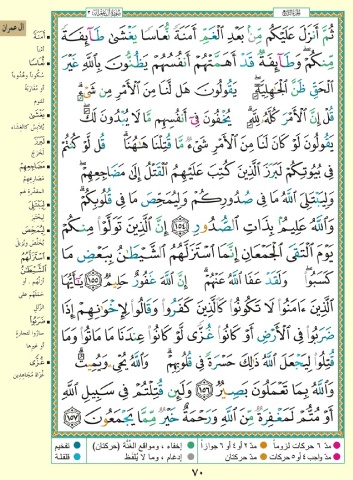 سورة آل عمران ٣
آل عمران
ثُمَّ أَنزَلَ عَلَيْكُم مِّنۢ بَعْدِ ٱلْغَمِّ أَمَنَةً نُّعَاسًا يَغْشَىٰ طَآئِفَةً
مِّنكُمْ ۖ وَطَآئِفَةٌ قَدْ أَهَمَّتْهُمْ أَنفُسُهُمْ يَظُنُّونَ بِٱللَّهِ غَيْرَ
ٱلْحَقِّ ظَنَّ ٱلْجَٰهِلِيَّةِ ۖ يَقُولُونَ هَل لَّنَا مِنَ ٱلْأَمْرِ مِن شَىْءٍ ۗ
قُلْ إِنَّ ٱلْأَمْرَ كُلَّهُۥ لِلَّهِ ۗ يُخْفُونَ فِىٓ أَنفُسِهِم مَّا لَا يُبْدُونَ لَكَ ۖ
يَقُولُونَ لَوْ كَانَ لَنَا مِنَ ٱلْأَمْرِ شَىْءٌ مَّا قُتِلْنَا هَٰهُنَا ۗ قُل لَّوْ كُنتُمْ
فِى بُيُوتِكُمْ لَبَرَزَ ٱلَّذِينَ كُتِبَ عَلَيْهِمُ ٱلْقَتْلُ إِلَىٰ مَضَاجِعِهِمْ ۖ
وَلِيَبْتَلِىَ ٱللَّهُ مَا فِى صُدُورِكُمْ وَلِيُمَحِّصَ مَا فِى قُلُوبِكُمْ ۗ
وَٱللَّهُ عَلِيمٌۢ بِذَاتِ ٱلصُّدُورِ ١٥٤ إِنَّ ٱلَّذِينَ تَوَلَّوْا۟ مِنكُمْ
يَوْمَ ٱلْتَقَى ٱلْجَمْعَانِ إِنَّمَا ٱسْتَزَلَّهُمُ ٱلشَّيْطَٰنُ بِبَعْضِ مَا
كَسَبُوا۟ ۖ وَلَقَدْ عَفَا ٱللَّهُ عَنْهُمْ ۗ إِنَّ ٱللَّهَ غَفُورٌ حَلِيمٌ ١٥٥ يَٰٓأَيُّهَا
ٱلَّذِينَ ءَامَنُوا۟ لَا تَكُونُوا۟ كَٱلَّذِينَ كَفَرُوا۟ وَقَالُوا۟ لِإِخْوَٰنِهِمْ إِذَا
ضَرَبُوا۟ فِى ٱلْأَرْضِ أَوْ كَانُوا۟ غُزًّى لَّوْ كَانُوا۟ عِندَنَا مَا مَاتُوا۟ وَمَا
قُتِلُوا۟ لِيَجْعَلَ ٱللَّهُ ذَٰلِكَ حَسْرَةً فِى قُلُوبِهِمْ ۗ وَٱللَّهُ يُحْىِۦ وَيُمِيتُ ۗ
وَٱللَّهُ بِمَا تَعْمَلُونَ بَصِيرٌ ١٥٦ وَلَئِن قُتِلْتُمْ فِى سَبِيلِ ٱللَّهِ
أَوْ مُتُّمْ لَمَغْفِرَةٌ مِّنَ ٱللَّهِ وَرَحْمَةٌ خَيْرٌ مِّمَّا يَجْمَعُونَ ١٥٧
أَمَنَةً
أمنا
نُعَاسًا
سكونا وهدوءا
أو مقاربة
للنوم
يَغْشَىٰ
يلابس كالغشاء
لَبَرَزَ
لخرج
مَضَاجِعِهِمْ
مصارعهم
المقدرة لهم
لِيَبْتَلِىَ
ليختبر
لِيُمَحِّصَ
يخلص ويزيل
ٱسْتَزَلَّهُمُ ٱلشَّيْطَٰنُ
أزلهم، أو
حملهم على
الزلل
ضَرَبُوا۟
ساروا لتجارة
أو غيرها
غُزًّى
غزاة مجاهدين
مدّ ٦ حركات لزوماً
مدّ ٢ أو ٤ أو ٦ جوازاً
إخفاء، ومواقع الغُنَّة (حركتان)
تفخيم
مدّ واجب ٤ أو ٥ حركات
مدّ حركتان
إدغام، وما لا يُلفظ
قلقلة
٧٠